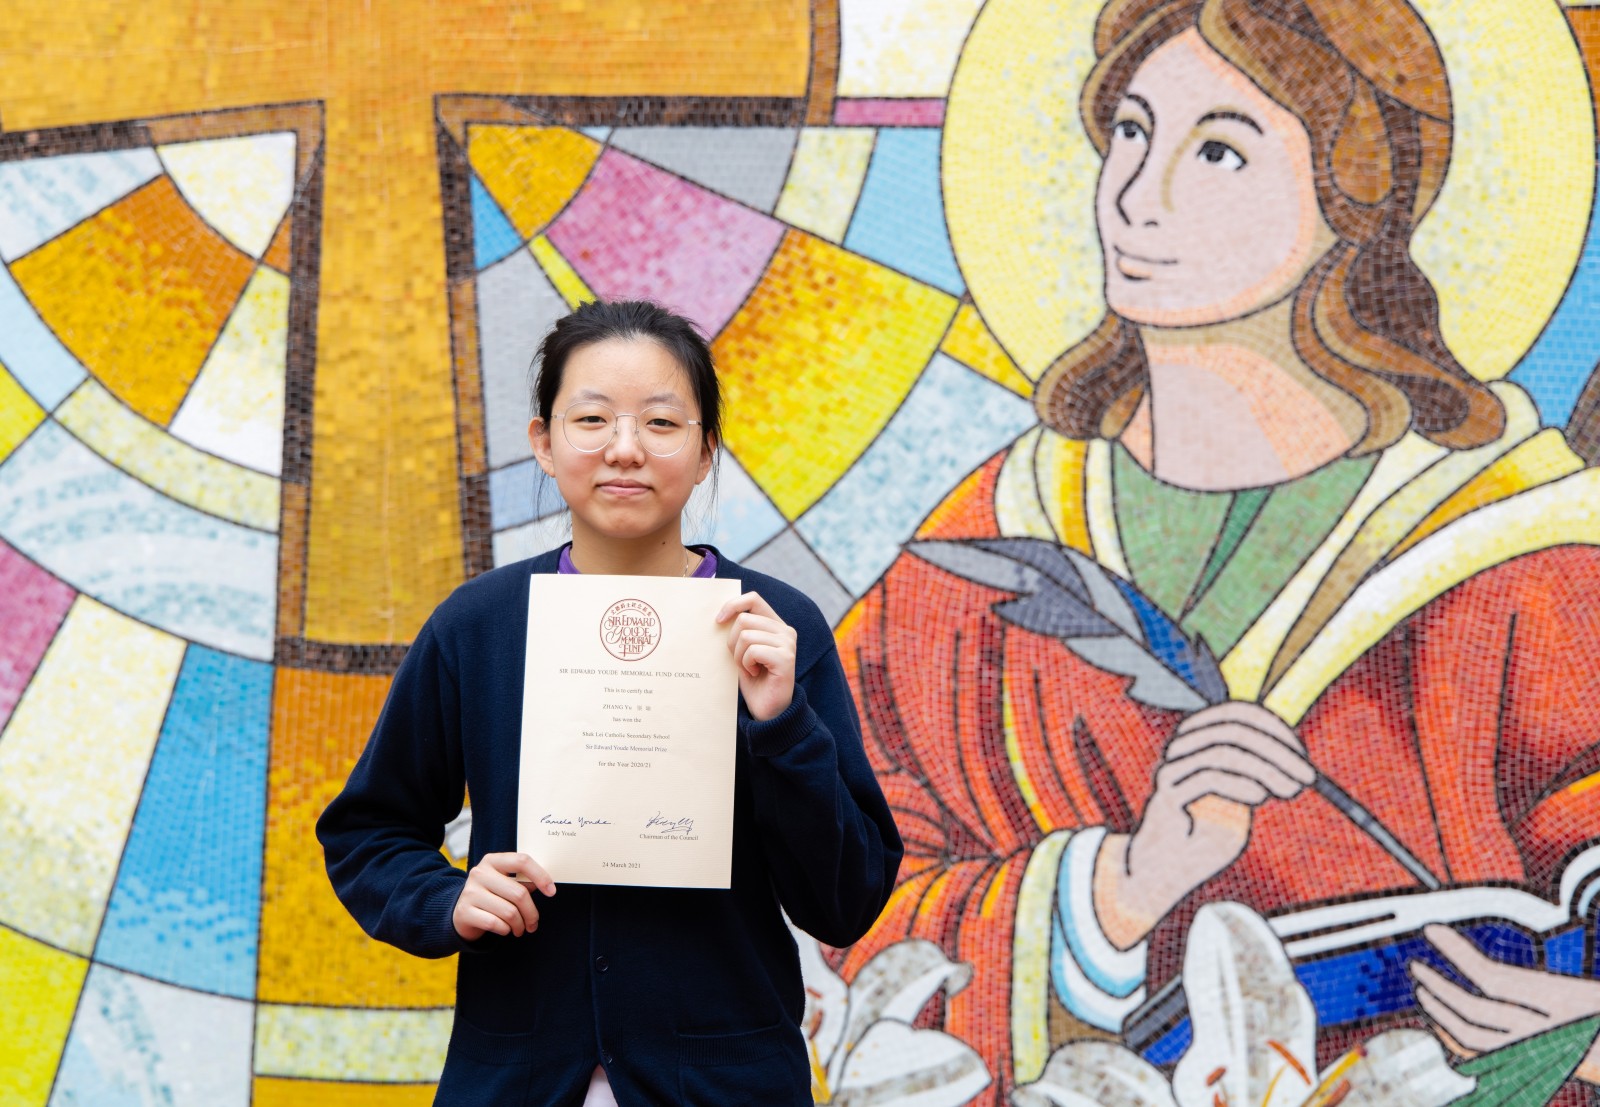 SIR EDWARD
YOUDE
MEMORIAL
FUND
SIR EDWARD YOUDE MEMORIAL FUND COUNCIL
This is to certify that
ZHANG Yu
has won the
Shek Lei Catholic Secondary School
Sir Edward Youde Memorial Prize
for the Year 2020/21
Pamela Youde
Lady Youde
Chairman of the Council
24 March 2021